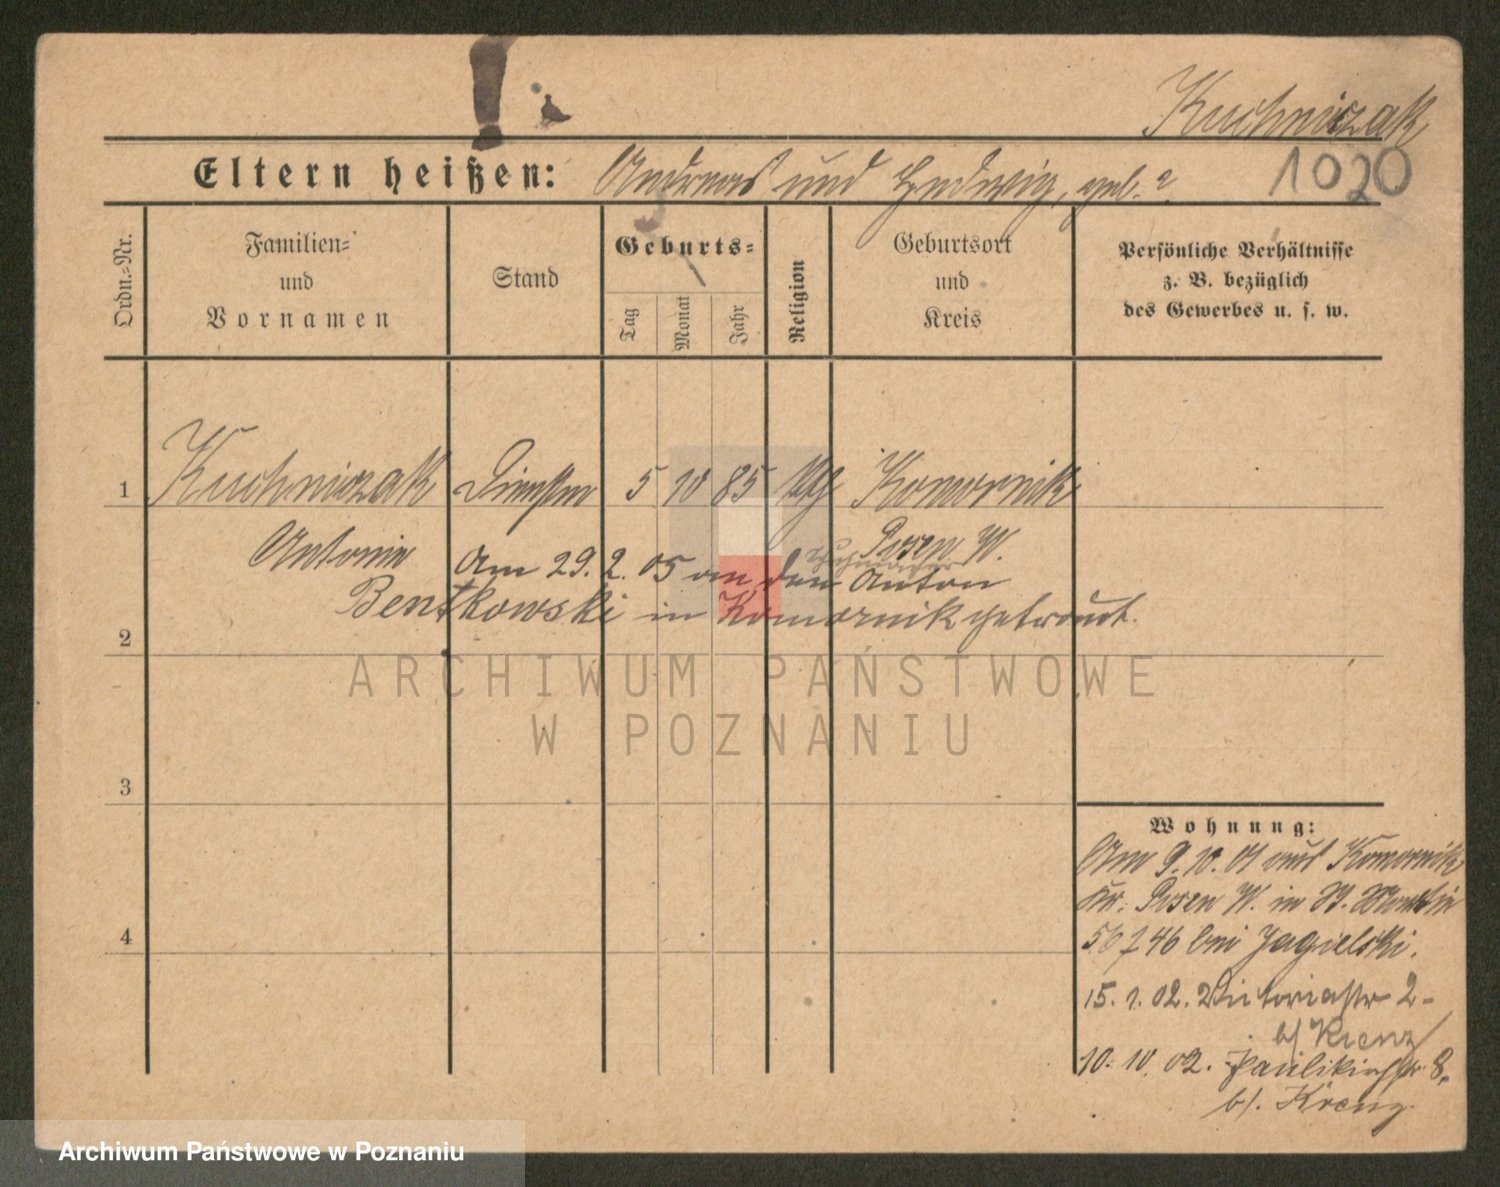 Kuchniczak
Eltern heißen: Andreas und Hedwig, geb. ?
1020
Ordn.=Nr.
Familien=
und
Vornamen
Stand
Geburts=
Tag
Monat
Jahr
Religion
Geburtsort
und
Kreis
Persönliche Verhältnisse
z. B. bezüglich
des Gewerbes u. s. w.
1 Kuchniczak 5 10 85 Komornik
Antonie Posen W.
Am 29. 2. 05 an den Anton
Bentkowski in Komornik getraut.
2
ARCHIWUM PAŃSTWOWE
W POZNANIU
3
Wohnung:
Am 9. 10. 01 aus Komornik
Kr. Posen W. in St. Martin
bei Jagielski.
4
15. 1. 02. Victoriastr 2
b/ Krenz
10. 10. 02. Paulikirchstr 8.
b/. Krenz
Archiwum Państwowe w Poznaniu